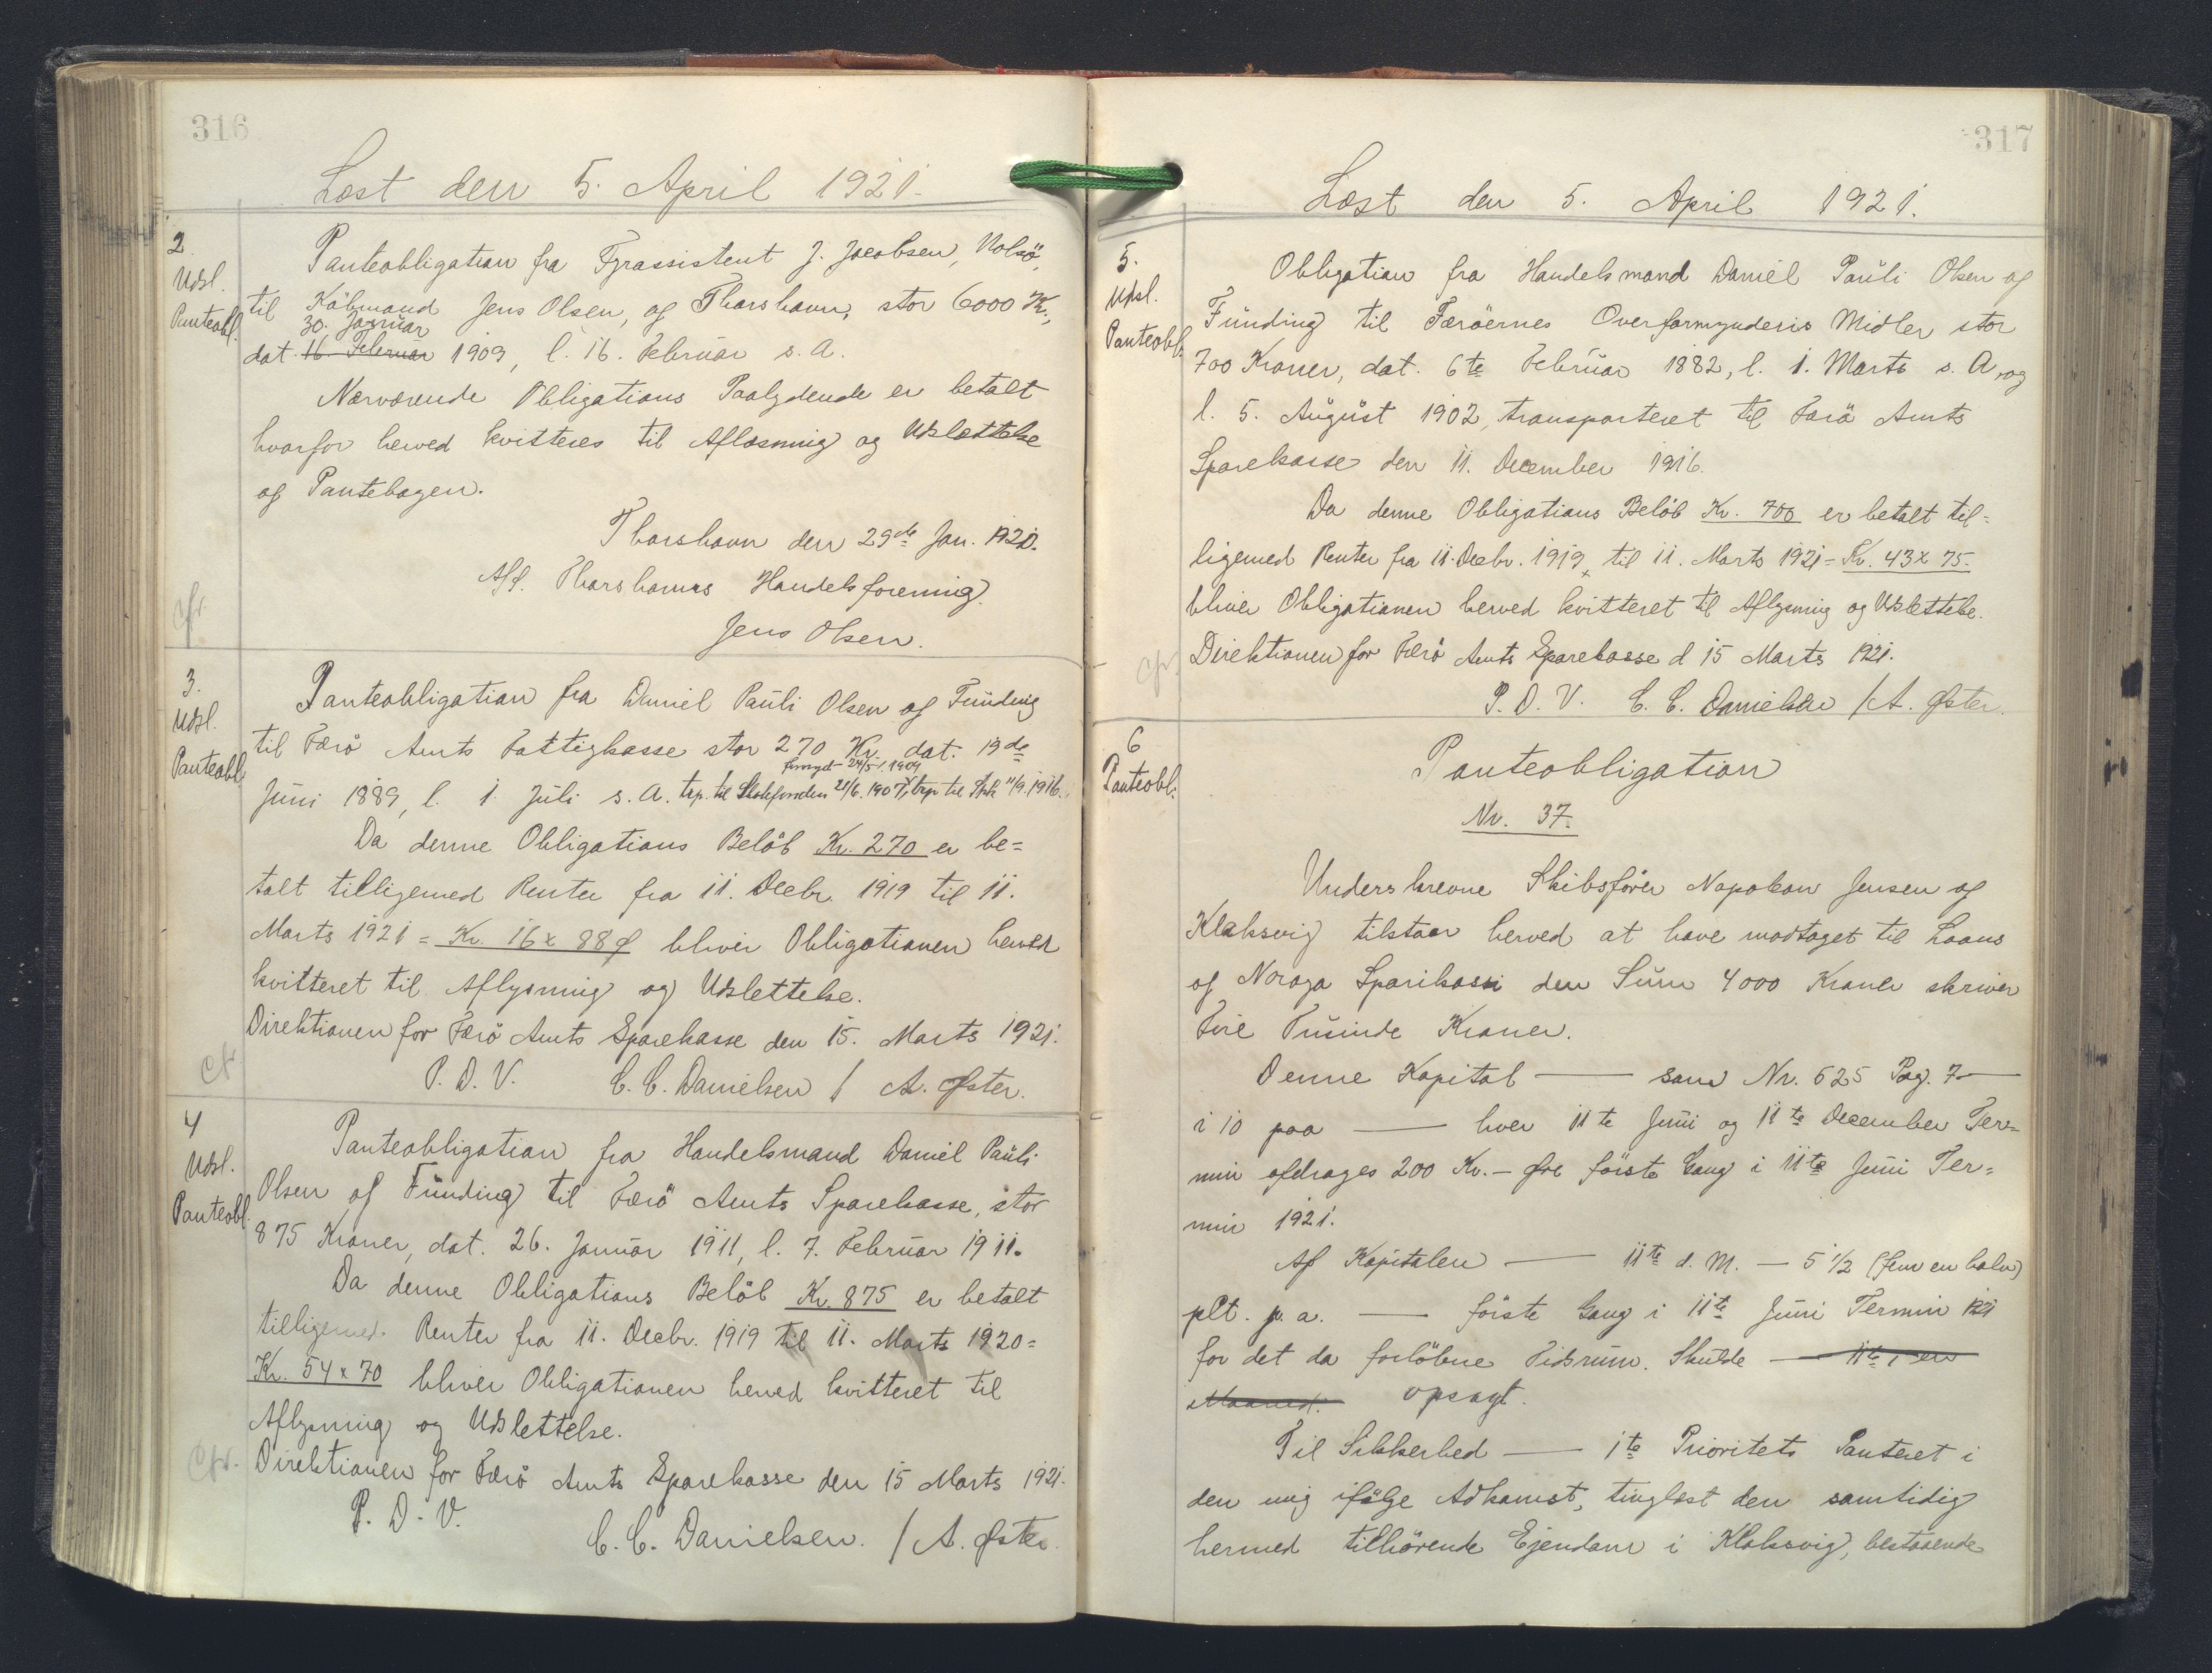 316
Læst den 5. April 1921.
2.
Udsl.
Panteobl.
Panteobligation fra Fyrassistent J. Jacobsen, Nolsö,
til Köbmand Jens Olsen, af Thorshavn, stor 6000 Kr.,
30. Januar
dat. 16 Februar 1909, l. 16. Februar s. A.
Nærværende Obligations Paalydende er betalt
hvorfor herved kvitteres til Aflæsning og Udslættelse
af Pantebogen.
Thorshavn den 29de Jan. 1920.
Aff. Thorshavns Handelsforening.
Jens Olsen.
cfr.
3.
Udsl.
Panteobl.
Panteobligation fra Daniel Pauli Olsen af Funding
til Færö Amts Fattigkasse stor 270 Kr. dat. 19de
fornyet 24/5 1909
Juni 1889, l. 1. Juli s. A. trp. til Skolefonden 21/6. 1907, trp til Spk 11/9. 1916.
Da denne Obligations Belöb Kr. 270 er be=
talt tilligemed Renter fra 11. Decbr. 1919 til 11.
Marts 1921 = Kr. 16 x 88 Ø bliver Obligationen herved
kvitteret til Aflysning og Udslettelse.
Direktionen for Færö Amts Sparekasse den 15. Marts 1921.
cfr.
P. D. V. C. C. Danielsen / A. Øster.
4
Udsl.
Panteobl.
Panteobligation fra Handelsmand Daniel Pauli
Olsen af Funding til Færö Amts Sparekasse, stor
875 Kroner, dat. 26. Januar 1911, l. 7. Februar 1911.
Da denne Obligations Belöb Kr. 875 er betalt
tilligemed Renter fra 11. Decbr. 1919 til 11. Marts 1920 =
Kr. 54 x 70 bliver Obligationen herved kvitteret til
Aflysning og Udslettelse.
cfr. Direktionen for Færö Amts Sparekasse den 15 Marts 1921.
P. D. V.
C. C. Danielsen. / A. Øster.
317
Læst den 5. April 1921.
5.
Udsl.
Panteobl.
Obligation fra Handelsmand Daniel Pauli Olsen af
Funding til Færöernes Overformynderis Midler stor
700 Kroner, dat. 6te Februar 1882, l. 1. Marts s. A, og
l. 5. August 1902, transporteret til Færö Amts
Sparekasse den 11. December 1916.
Da denne Obligations Belöb Kr. 700 er betalt til=
ligemed Renter fra 11. Decbr. 1919 til 11. Marts 1921 = Kr. 43 x 75.
bliver Obligationen herved kvitteret til Aflysning og Udslettelse.
cfr. Direktionen for Færö Amts Sparekasse d 15 Marts 1921.
P. D. V. C. C. Danielsen / A. Øster.
6
Panteobl.
Panteobligation
Nr. 37.
Underskrevne Skibsförer Napoleon Jensen af
Klaksvig tilstaar herved at have modtaget til Laans
af Noroya Sparikassi den Sum 4000 Kroner skriver
Fire Tusinde Kroner.
Denne Kapital — som Nr. 625 Pag. 7 —
i 10 paa — hver 11te Juni og 11te December Ter=
min afdrages 200 Kr. — Øre förste Gang i 11te Juni Ter=
min 1921.
Af Kapitalen — 11te d. M. — 5 1/2 (fem en halv)
pCt. p. a. — förste Gang i 11te Juni Termin 1921
for det da forlöbne Tidsrum. Skulde — 11te i en
Maaned. opsagt.
Til Sikkerhed — 1te Prioritets Panteret i
den mig ifölge Adkomst, tinglæst den samtidig
hermed tilhörende Ejendom i Klaksvig, bestaaende